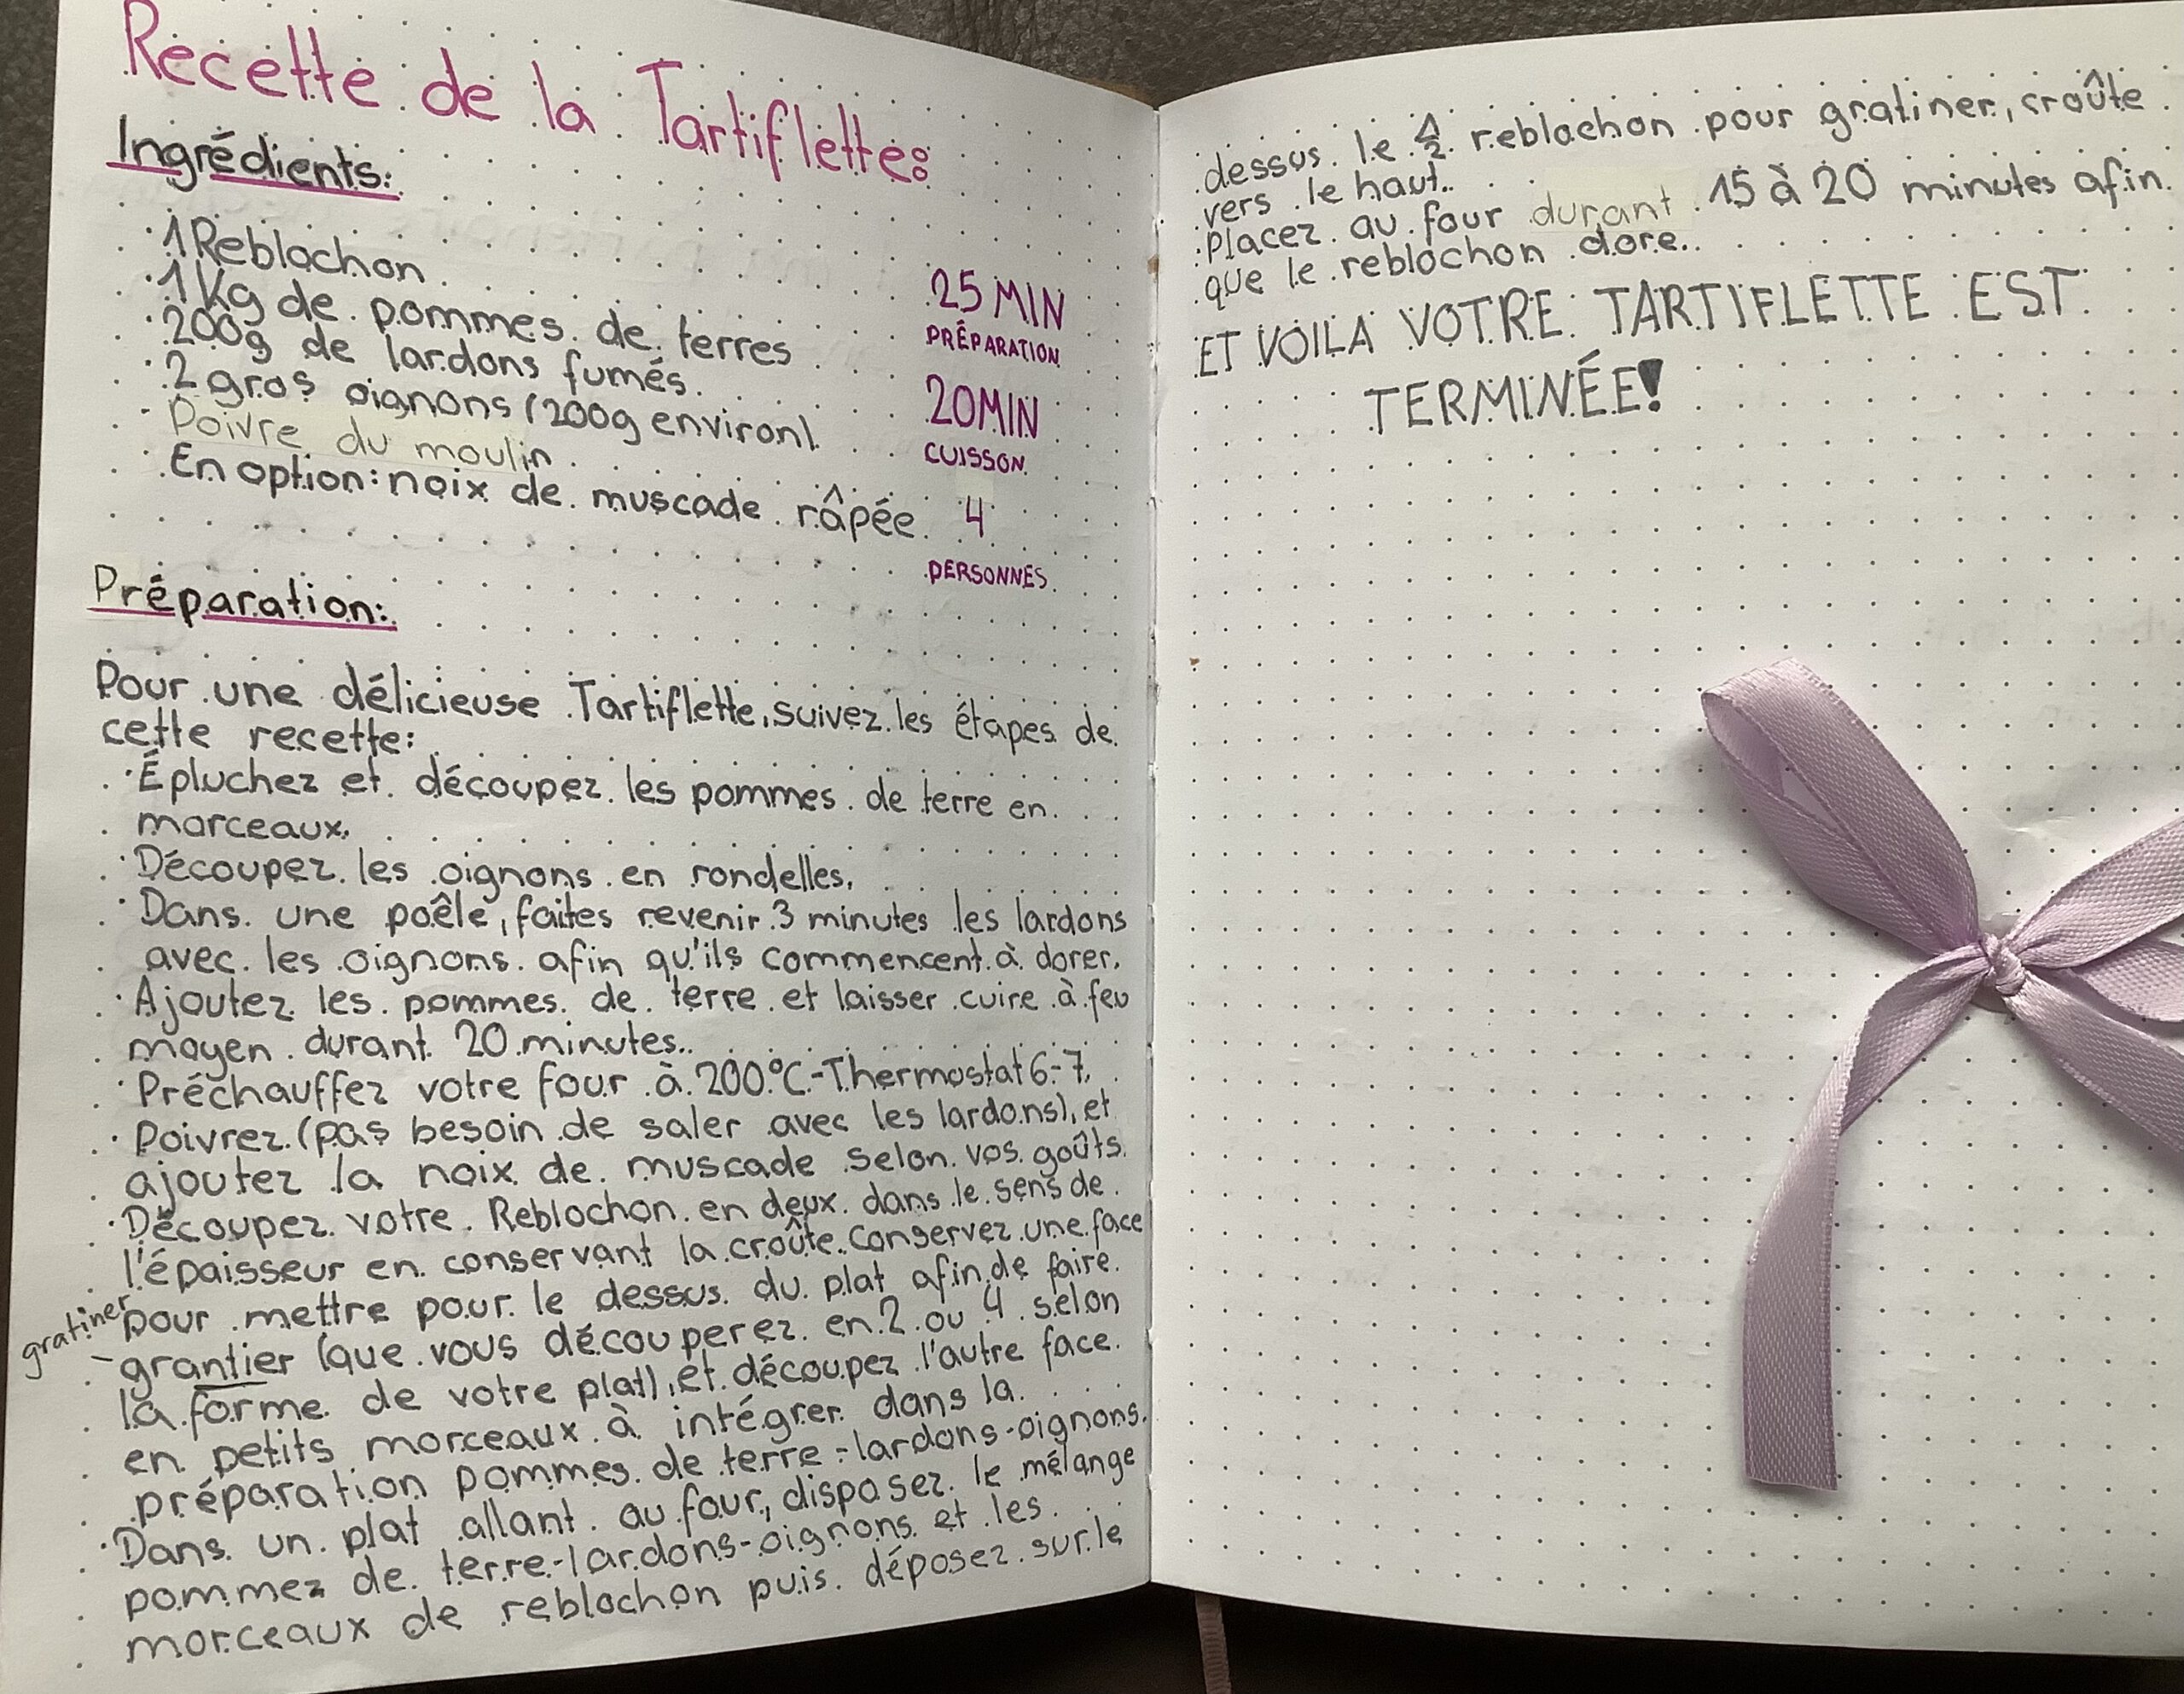 Recette de la Tartiflette:
Ingrédients:
· 1 Reblochon
· 1 Kg de pommes de terres
· 200g de lardons fumés
· 2 gros oignons (200g environ)
- Poivre du moulin
· En option: noix de muscade râpée
25 MIN
PRÉPARATION
20 MIN
CUISSON
4
PERSONNES
Préparation:
Pour une délicieuse Tartiflette, suivez les étapes de
cette recette:
· Épluchez et découpez les pommes de terre en
morceaux,
· Découpez les oignons en rondelles,
· Dans une poêle, faites revenir 3 minutes les lardons
avec les oignons afin qu'ils commencent à dorer,
· Ajoutez les pommes de terre et laisser cuire à feu
moyen durant 20 minutes.
· Préchauffez votre four à 200°C - Thermostat 6-7,
· Poivrez (pas besoin de saler avec les lardons), et
ajoutez la noix de muscade selon vos goûts.
· Découpez votre Reblochon en deux dans le sens de
l'épaisseur en conservant la croûte. Conservez une face
pour mettre pour le dessus du plat afin de faire
gratiner
- grantier (que vous découperez en 2 ou 4 selon
la forme de votre plat), et découpez l'autre face
en petits morceaux à intégrer dans la
préparation pommes de terre - lardons - oignons.
· Dans un plat allant au four, disposez le mélange
pommez de terre - lardons - oignons et les
morceaux de reblochon puis déposez sur le
dessus le 1/2 reblochon pour gratiner, croûte
vers le haut.
Placez au four durant 15 à 20 minutes afin
que le reblochon dore.
ET VOILA VOTRE TARTIFLETTE EST
TERMINÉE!